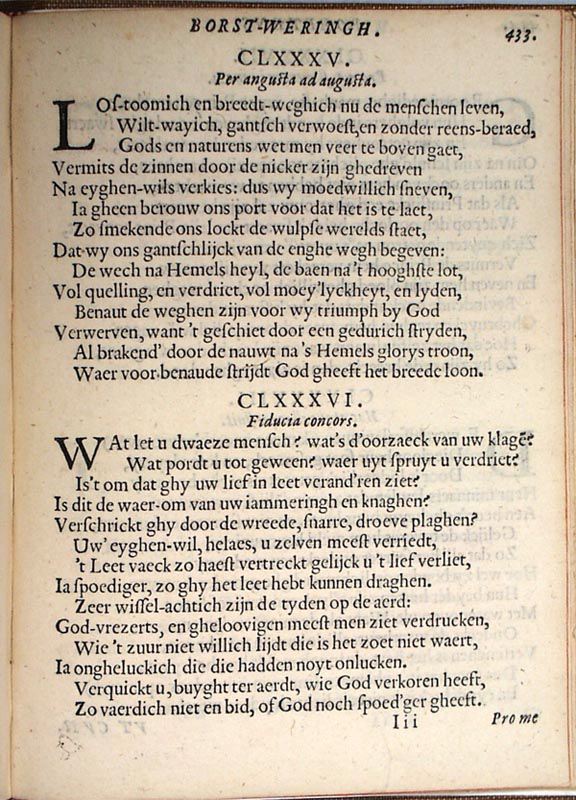 BORST-WERINGH. 433.
CLXXXV.
Per anguſta ad auguſta.
LOſ-toomich en breedt-weghich nu de menſchen leven,
Wilt-wayich, gantſch verwoeſt, en zonder reens-beraed,
Gods en naturens wet men veer te boven gaet,
Vermits de zinnen door de nicker zijn ghedreven
Na eyghen-wils verkies: dus wy moedwillich ſneven,
Ia gheen berouw ons port voor dat het is te laet,
Zo ſmekende ons lockt de wulpſe werelds ſtaet,
Dat wy ons gantſchlijck van de enghe wegh begeven:
De wech na Hemels heyl, de baen na't hooghſte lot,
Vol quelling, en verdriet, vol moey'lyckheyt, en lyden,
Benaut de weghen zijn voor wy triumph by God
Verwerven, want 't geſchiet door een gedurich ſtryden,
Al brakend' door de nauwt na's Hemels glorys troon,
Waer voor benaude ſtrijdt God gheeft het breede loon.
CLXXXVI.
Fiducia concors.
WAt let u dwaeze menſch? wat's d'oorzaeck van uw klagē?
Wat pordt u tot geween? waer uyt ſpruyt u verdriet?
Is't om dat ghy uw lief in leet verand'ren ziet?
Is dit de waer-om van uw iammeringh en knaghen?
Verſchrickt ghy door de wreede, ſnarre, droeve plaghen?
Uw' eyghen-wil, helaes, u zelven meeſt verriedt,
't Leet vaeck zo haeſt vertreckt gelijck u 't lief verliet,
Ia ſpoediger, zo ghy het leet hebt kunnen draghen.
Zeer wiſſel-achtich zijn de tyden op de aerd:
God-vrezerts, en gheloovigen meeſt men ziet verdrucken,
Wie 't zuur niet willich lijdt die is het zoet niet waert,
Ia ongheluckich die die hadden noyt onlucken.
Verquickt u, buyght ter aerdt, wie God verkoren heeft,
Zo vaerdich niet en bid, of God noch ſpoed'ger gheeft.
Iii Pro me